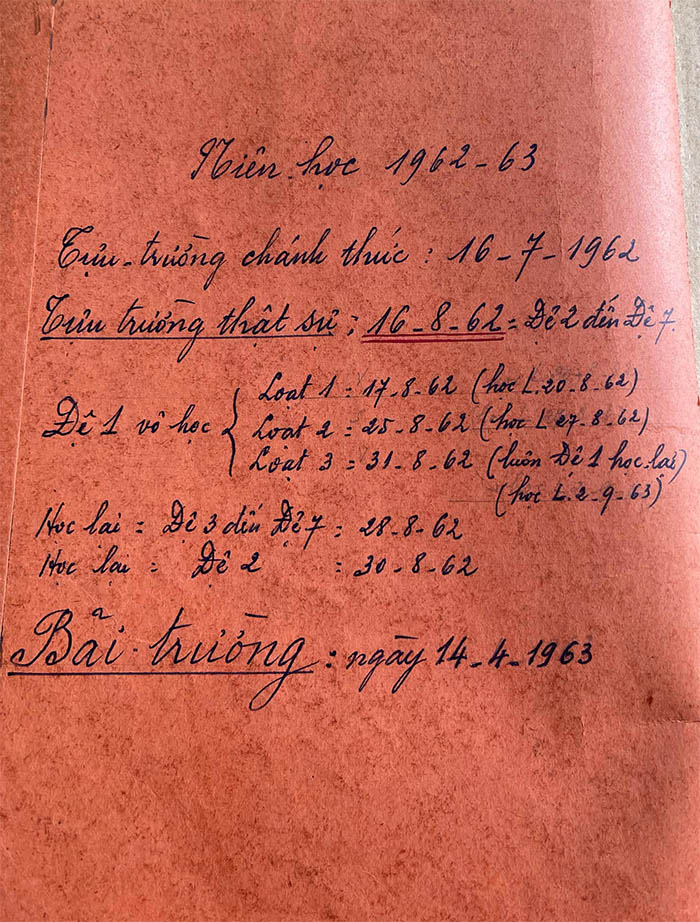 Niên học 1962-63
Tựu-trường chánh thức : 16-7-1962
Tựu trường thật sự : 16-8-62 = Đệ 2 đến Đệ 7.
Đệ 1 vô học { Loạt 1 = 17-8-62 (học L. 20-8-62)
Loạt 2 = 25-8-62 (học L 27-8-62)
Loạt 3 = 31-8-62 (luôn Đệ 1 học lại)
(học L. 2-9-63)
Học lại = Đệ 3 đến Đệ 7 = 28-8-62
Học lại = Đệ 2 = 30-8-62
Bãi-trường : ngày 14-4-1963